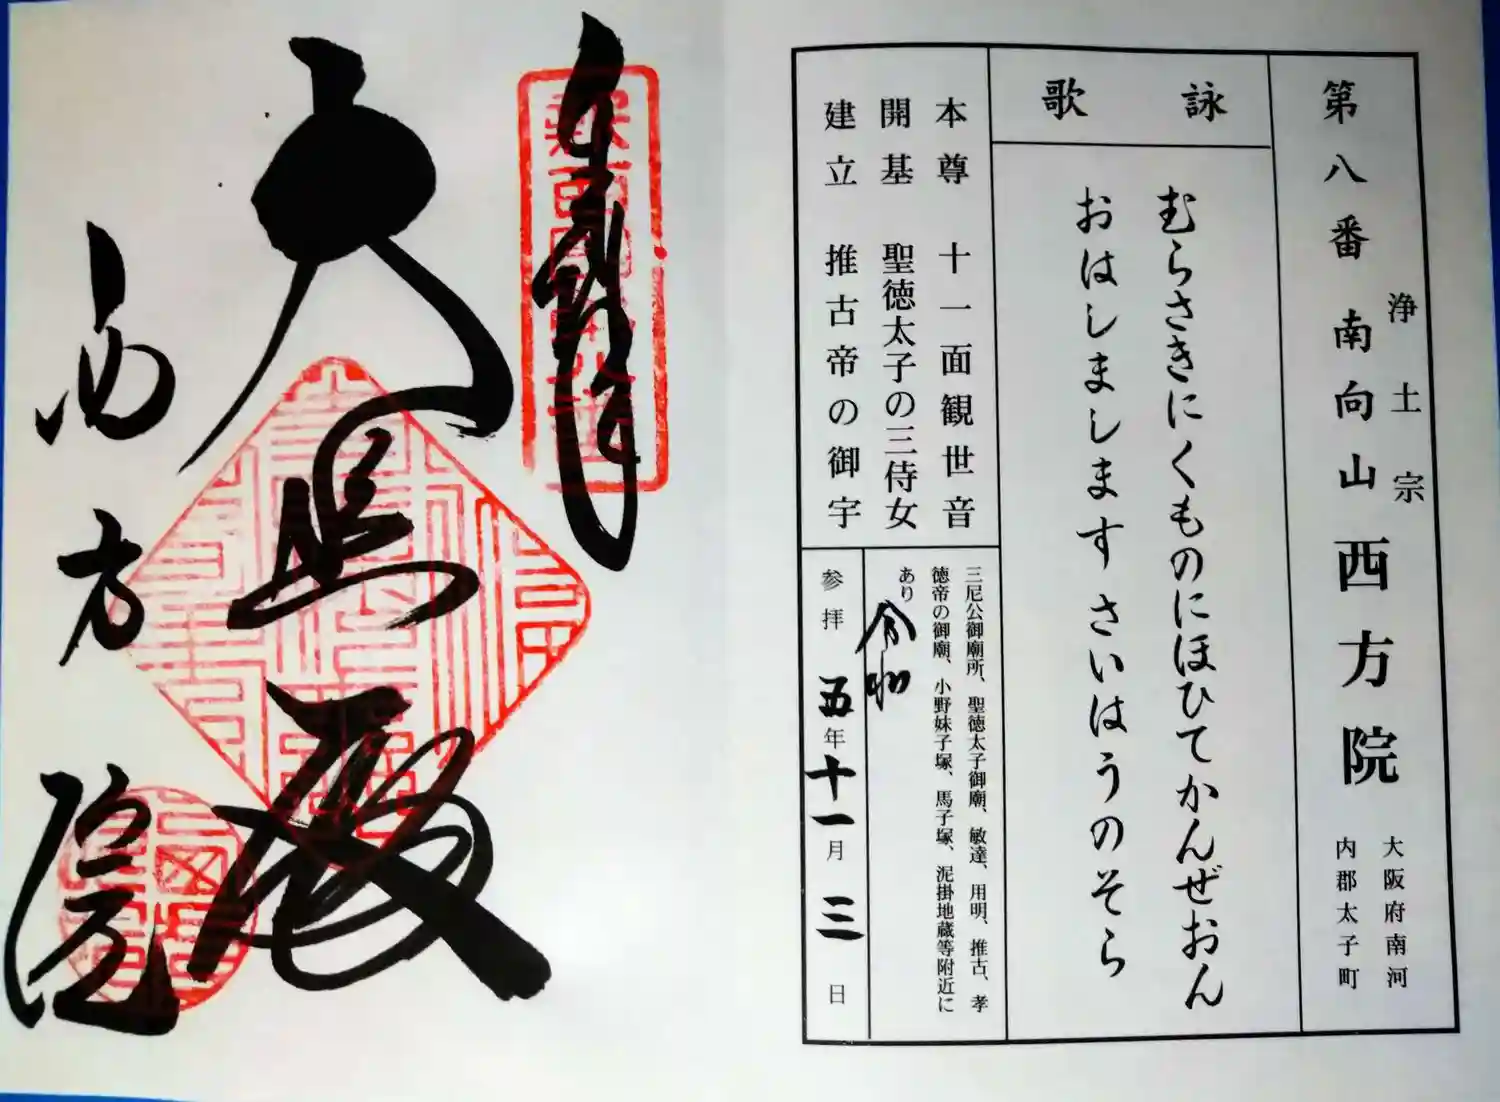 第八番 南向山 西方院
浄土宗
大阪府南河
内郡太子町
詠歌
むらさきにくものにほひてかんぜおん
おはしましますさいはうのそら
本尊 十一面観世音
開基 聖徳太子の三侍女
建立 推古帝の御宇
三尼公御廟所、聖徳太子御廟、敏達、用明、推古、孝
徳帝の御廟、小野妹子塚、馬子塚、泥掛地蔵等附近に
あり
令和
参拝 五年十一月三日
奉拝
大悲殿
西方院